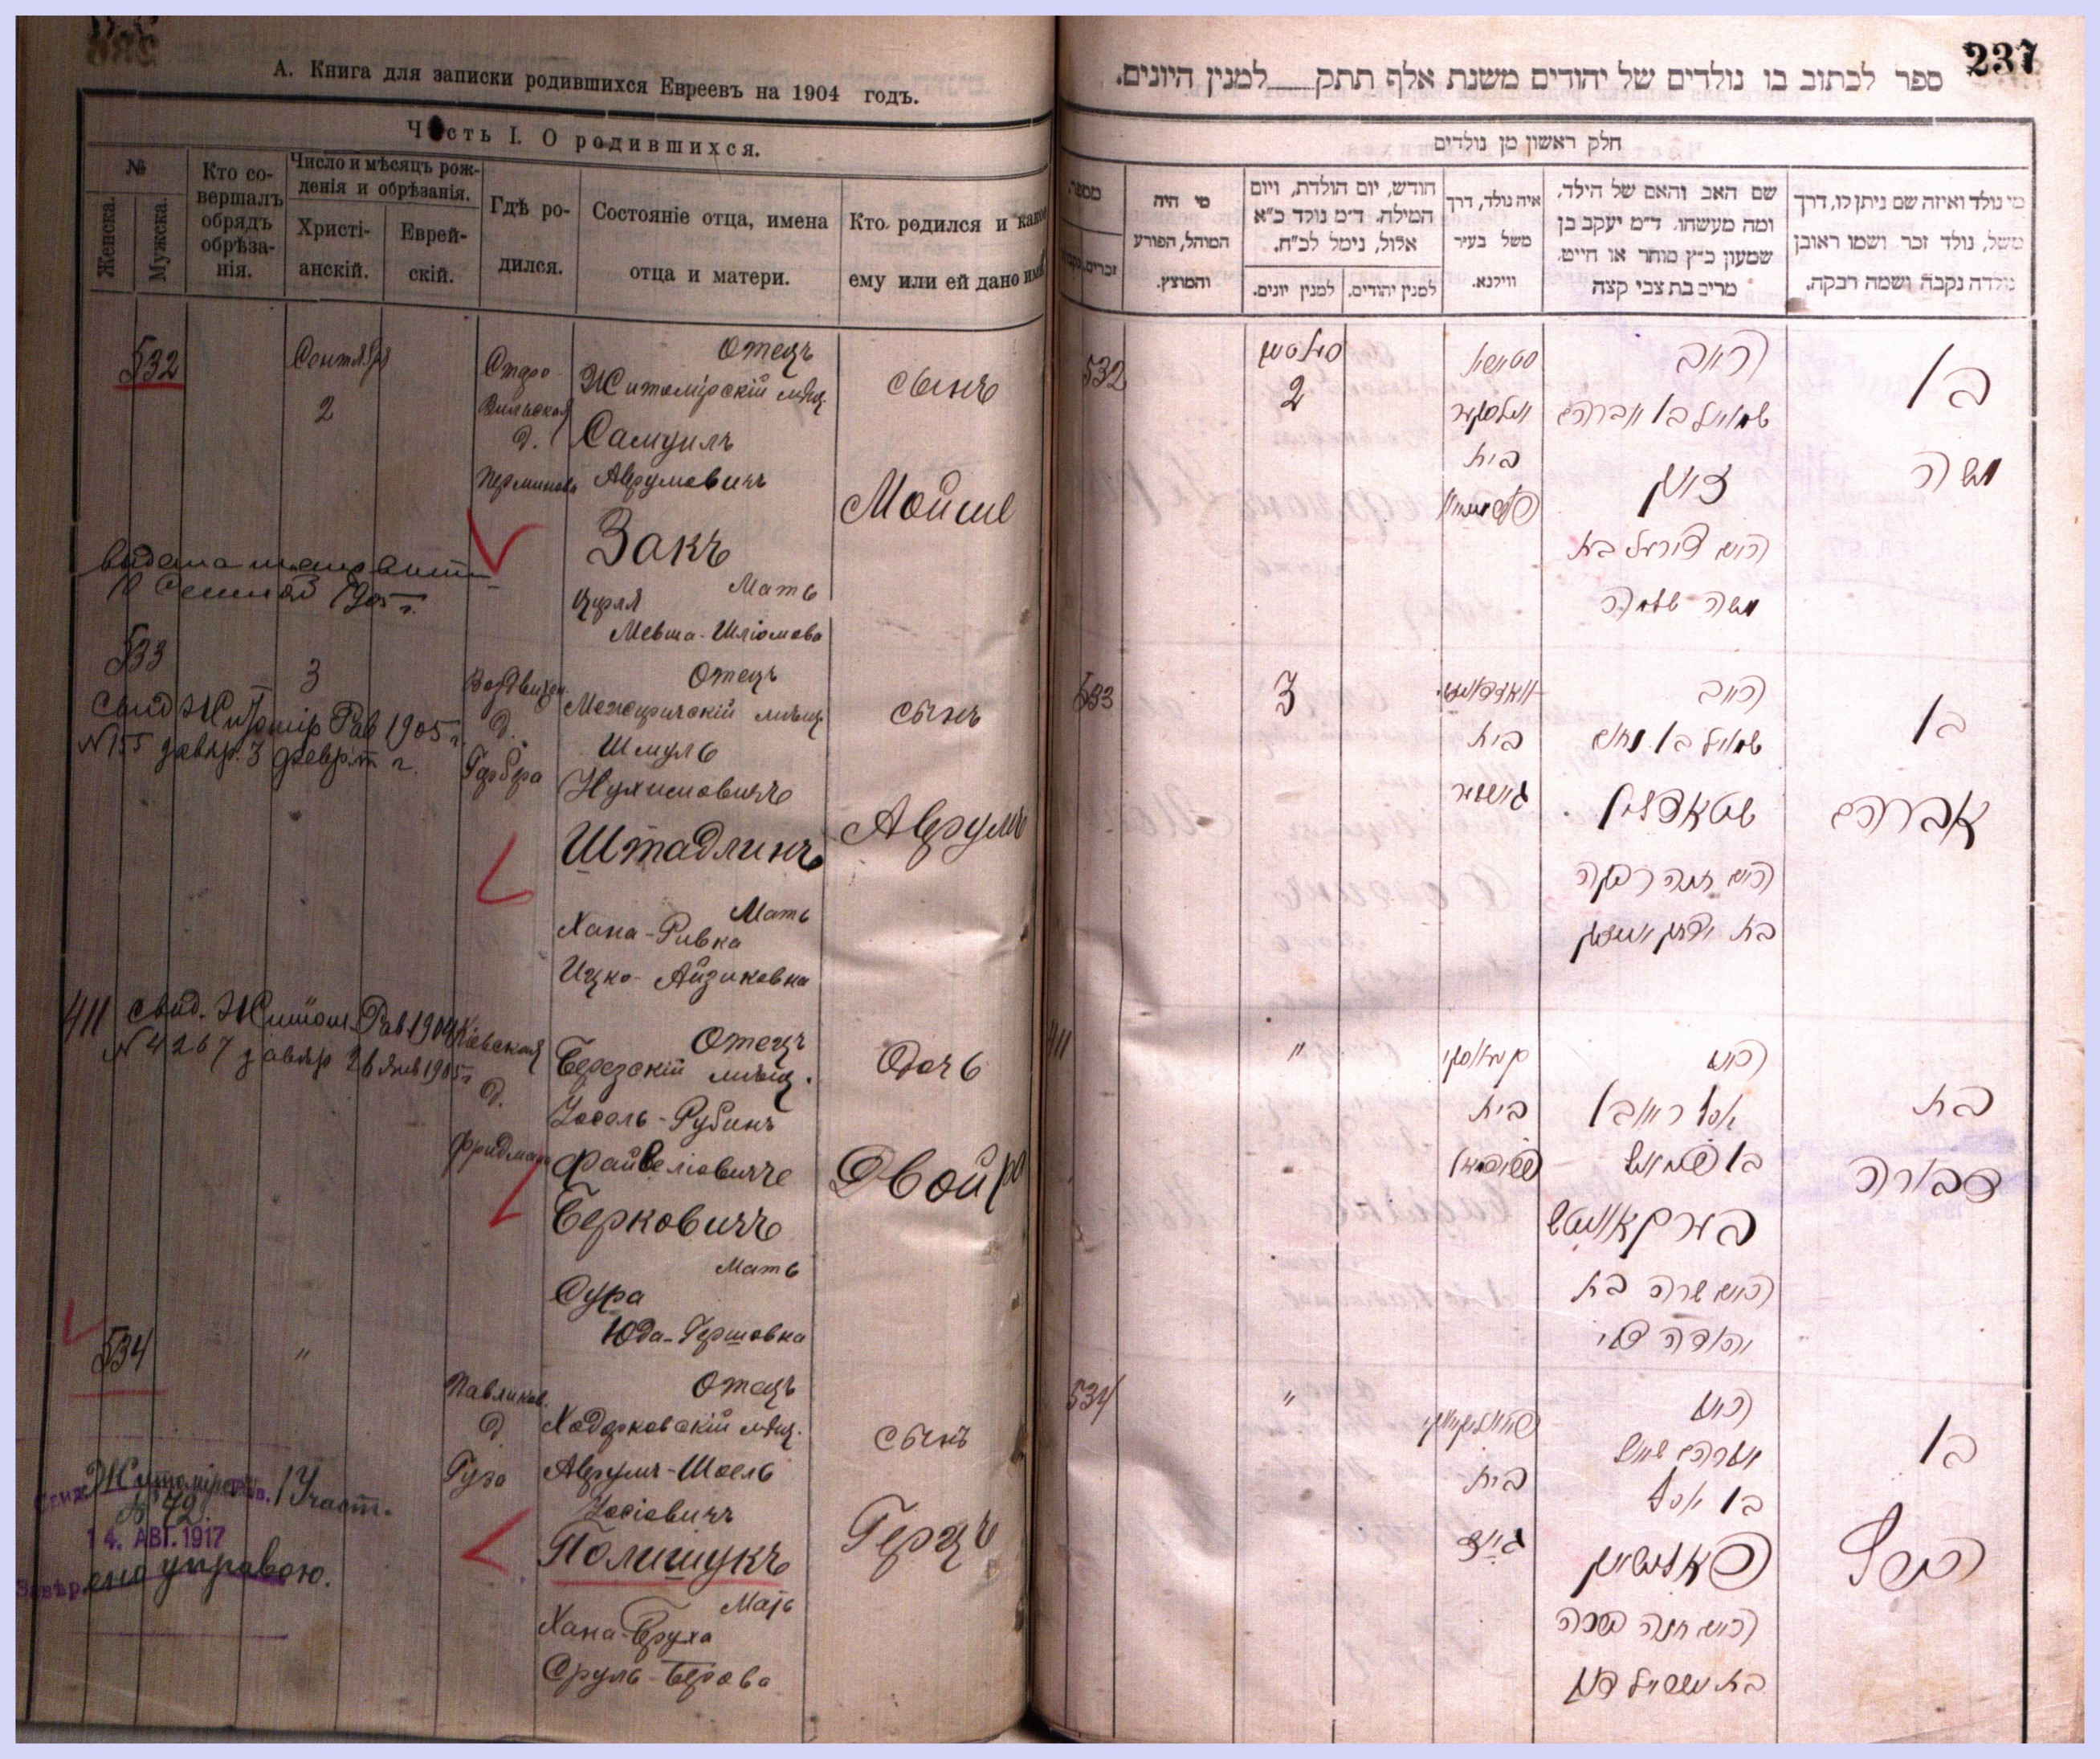 А. Книга для записки родившихся Евреевъ на 1904 годъ.
Часть I. О родившихся.
№
Женска.
Мужска.
Кто со-
вершалъ
обрядъ
обрѣза-
нія.
Число и мѣсяцъ рож-
денія и обрѣзанія.
Христі-
анскій.
Еврей-
скій.
Гдѣ ро-
дился.
Состояніе отца, имена
отца и матери.
Кто родился и какое
ему или ей дано имя
532
Сентября
2
Старо-
Вильская
д.
Отецъ
Житомірскій мѣщ.
Самуилъ
Аврумовичъ
Закъ
Мать
Цирля
Мевша-Шліомова
сынъ
Мойше
1905 г.
533
3
д.
Гербера
Отецъ
Межиричскій мѣщ.
Шмуль
Нухимовичъ
Штадлинъ
Мать
Хана-Ривка
Ицко-Айзиковна
сынъ
Аврумъ
свид. Житомір Рав 1905 г.
№ 155 завѣр. 3 февр. т. г.
411
свид. Житом. Рав. 1904
№ 4267 завѣр 26 янв 1905 г
Кіевская
д.
Фридмана
Отецъ
Березскій мѣщ.
Іосель-Рубинъ
Файвеліовичъ
Берковичъ
Мать
Сура
Юда-Гершовна
Дочь
Двойра
534
"
Павликов.
д
Гузо
Отецъ
Ходорковскій мѣщ.
Аврумъ-Шоель
Іосіовичъ
Полишукъ
Мать
Хана-Бруха
Сруль-Берова
сынъ
Герцъ
Житомірск. 1 Участ.
№ 72
14. АВГ. 1917
управою.
237
ספר לכתוב בו נולדים של יהודים משנת אלף תתק למנין היונים.
חלק ראשון מן נולדים
מי נולד ואיזה שם ניתן לו, דרך
משל, נולד זכר ושמו ראובן
נולדה נקבה ושמה רבקה.
שם האב והאם של הילד,
ומה מעשהו. ד״מ יעקב בן
שמעון כ״ץ סוחר או חייט,
מרים בת צבי קצה
איה נולד, דרך
משל בעיר
ווילנא.
חודש, יום הולדת, ויום
המילה. ד״מ נולד כ״א
אלול, נימל לכ״ח.
למנין יהודים.
למנין יונים.
מי היה
המוהל, הפורע
והמוצץ.
מספר
זכרים
532
2
בית
האב
שמואל בן אברהם
זאק
האם צירל בת
משה שלמה
בן
משה
533
3
בית
גערבער
האב
שמואל בן נחום
שטאדלין
האם חנה רבקה
בן
אברהם
411
"
בית
האב
יוסף ראובן
בערקאוויטש
האם שרה בת
יהודה צבי
בת
דבורה
534
"
בית
האב
אברהם שאול
בן יוסף
פאלישוק
האם חנה ברכה
בן
הערץ